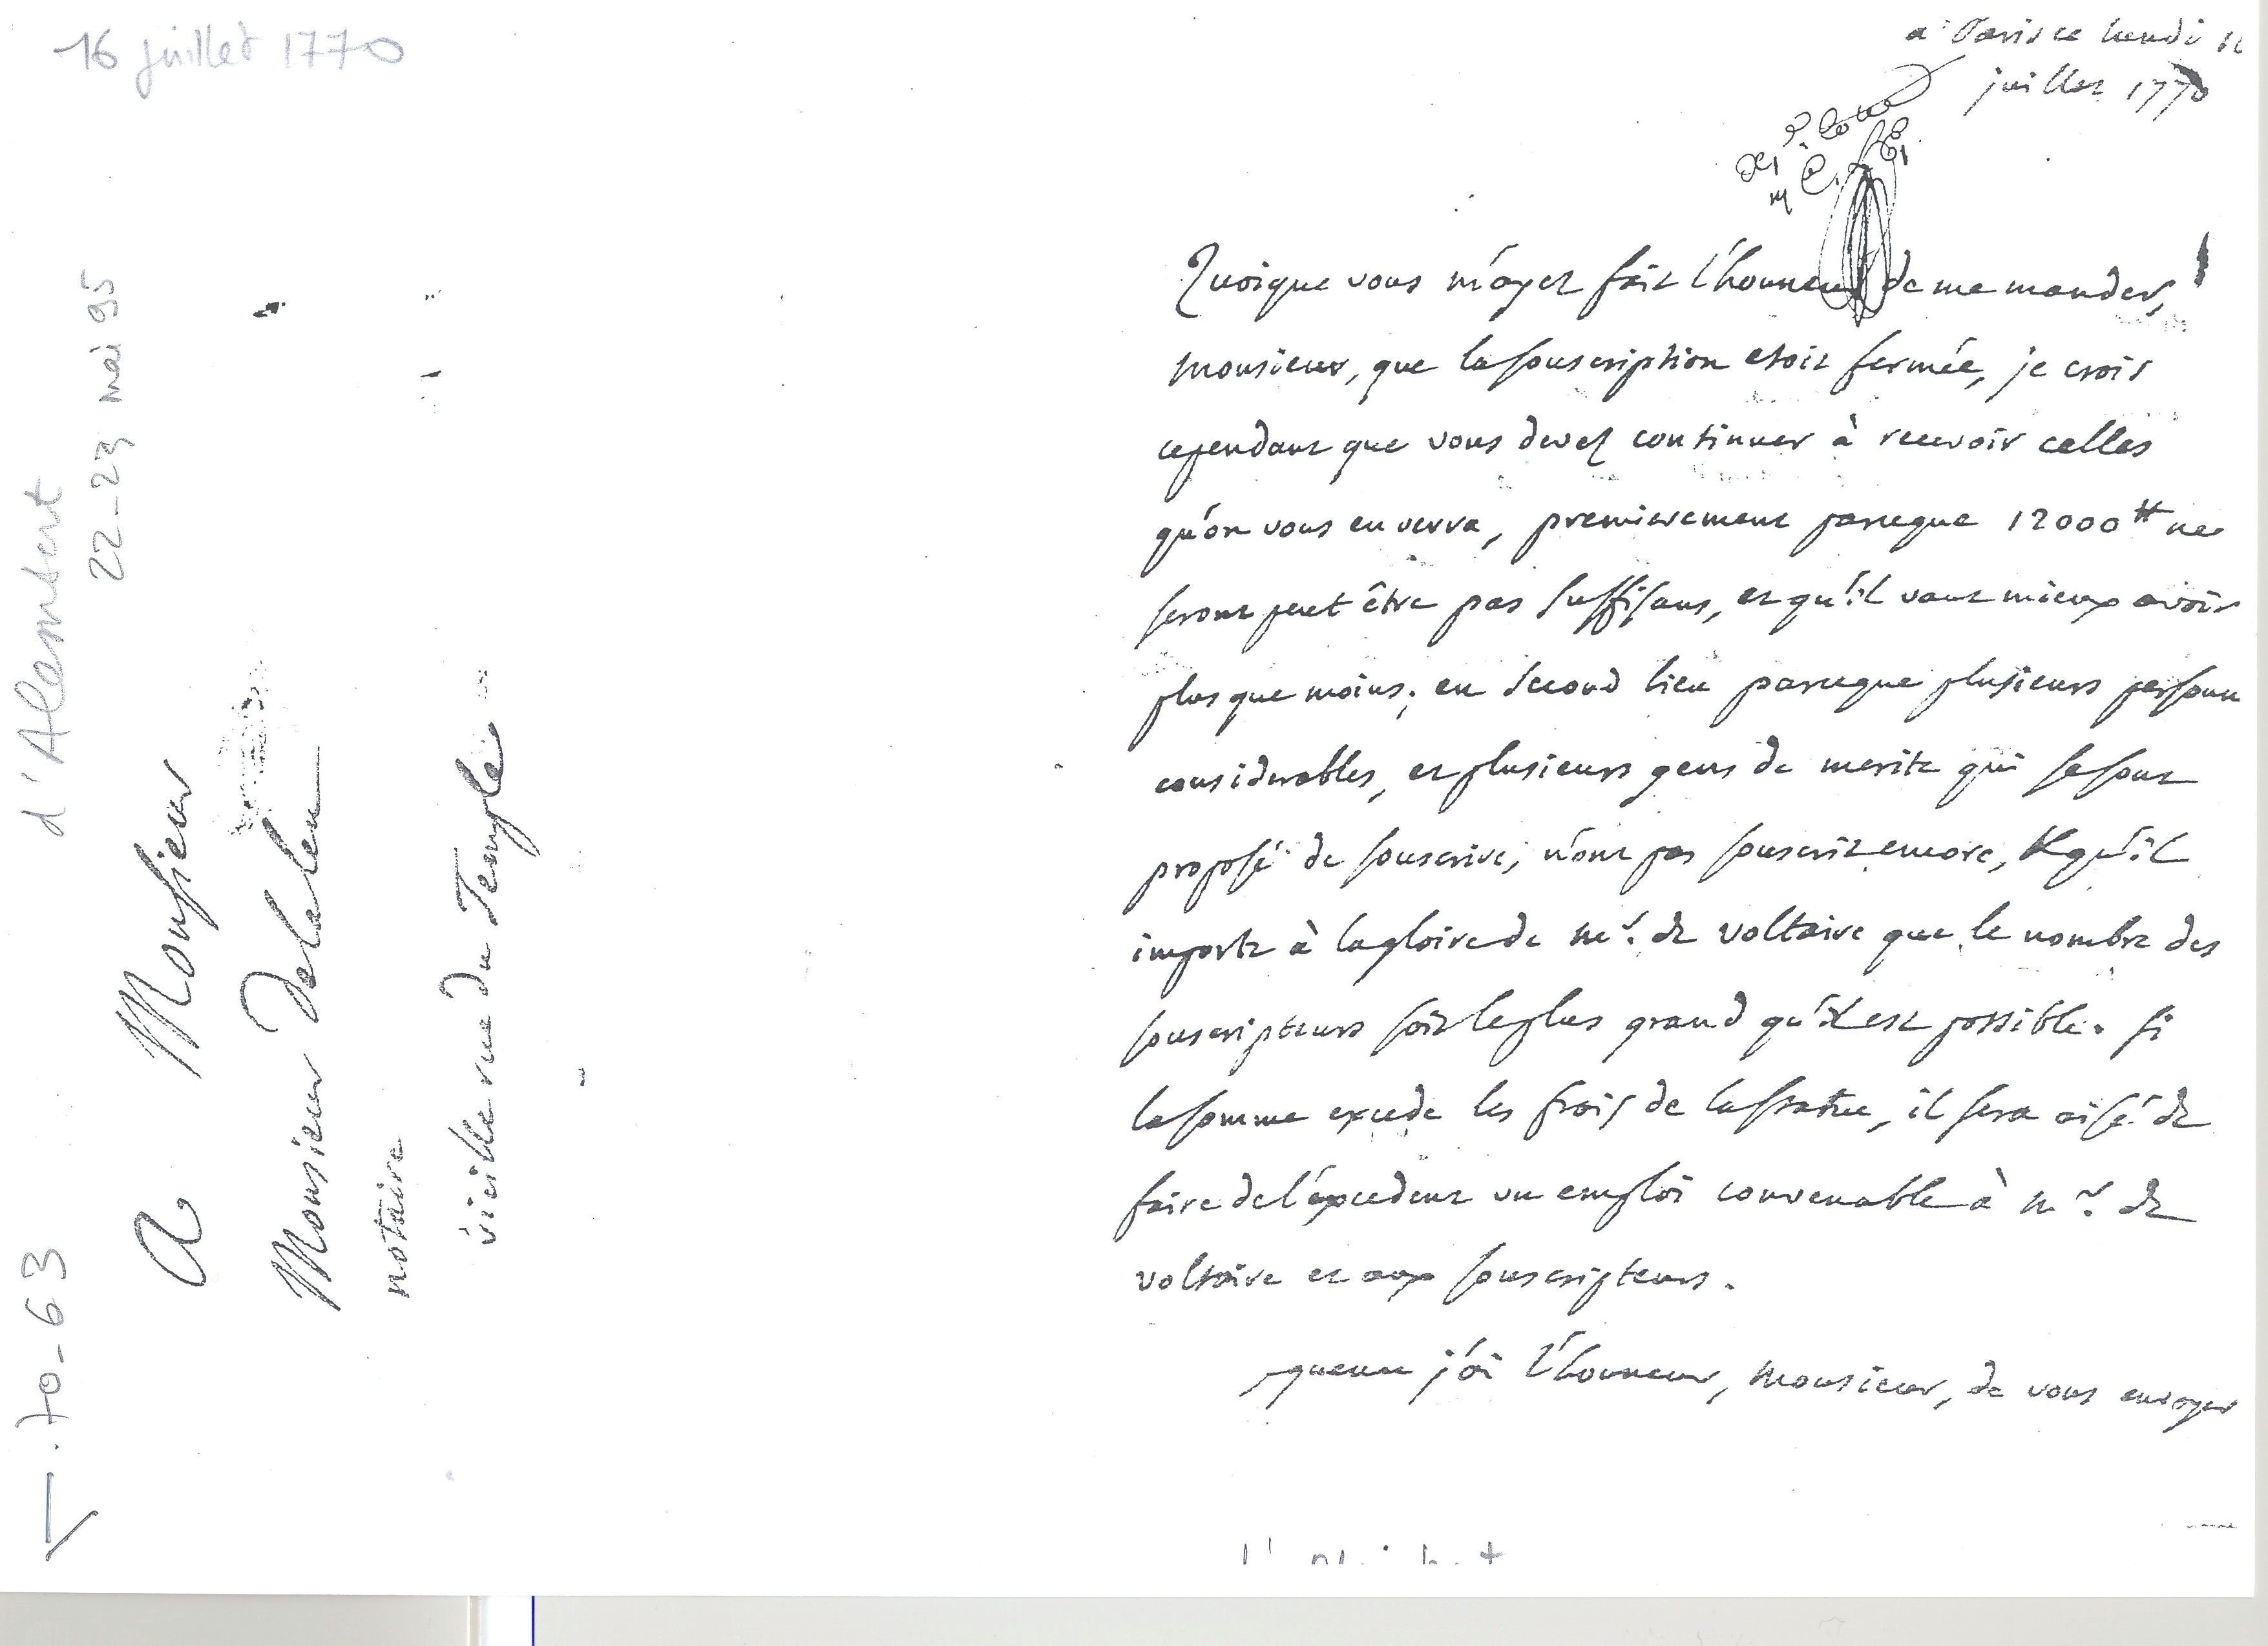 16 juillet 1770
d'Alembert
22-23 mai 95
A Monsieur
Monsieur Delaleu
notaire
vieille rue du Temple
70-63
a Paris ce lundi 16
juillet 1770
Quoique vous m'ayez fait l'honneur de me mander,
monsieur, que la souscription etoit fermée, je crois
cependant que vous devez continuer à recevoir celles
qu'on vous enverra, premierement parceque 12000 ₶ ne
seront peut être pas suffisans, et qu'il vaut mieux avoir
plus que moins; en second lieu parceque plusieurs personn
considerables, et plusieurs gens de merite qui se sont
proposé de souscrire, n'ont pas souscrit encore, & qu'il
importe à la gloire de mr. de voltaire que le nombre des
souscripteurs soit le plus grand qu'il est possible. si
la somme excede les frais de la statue, il sera aisé de
faire de l'éxcedent un emploi convenable à mr. de
voltaire et aux souscripteurs.
j'ai l'honneur, monsieur, de vous envoyer